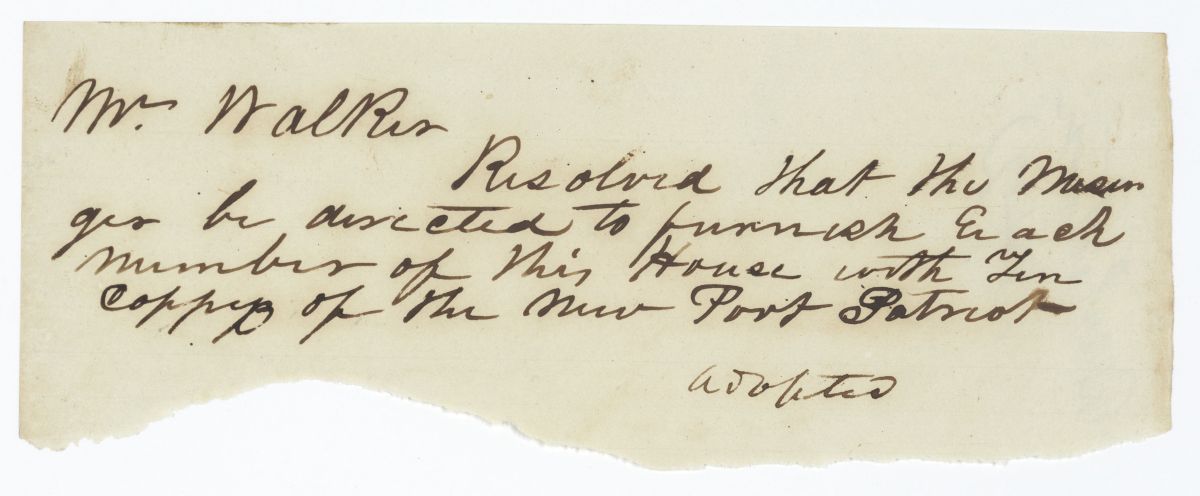 Mr. Walker
Resolved that the Messen
ger be directed to furnish Each
Member of this House with Ten
Coppies of the New Port Patriot
adopted